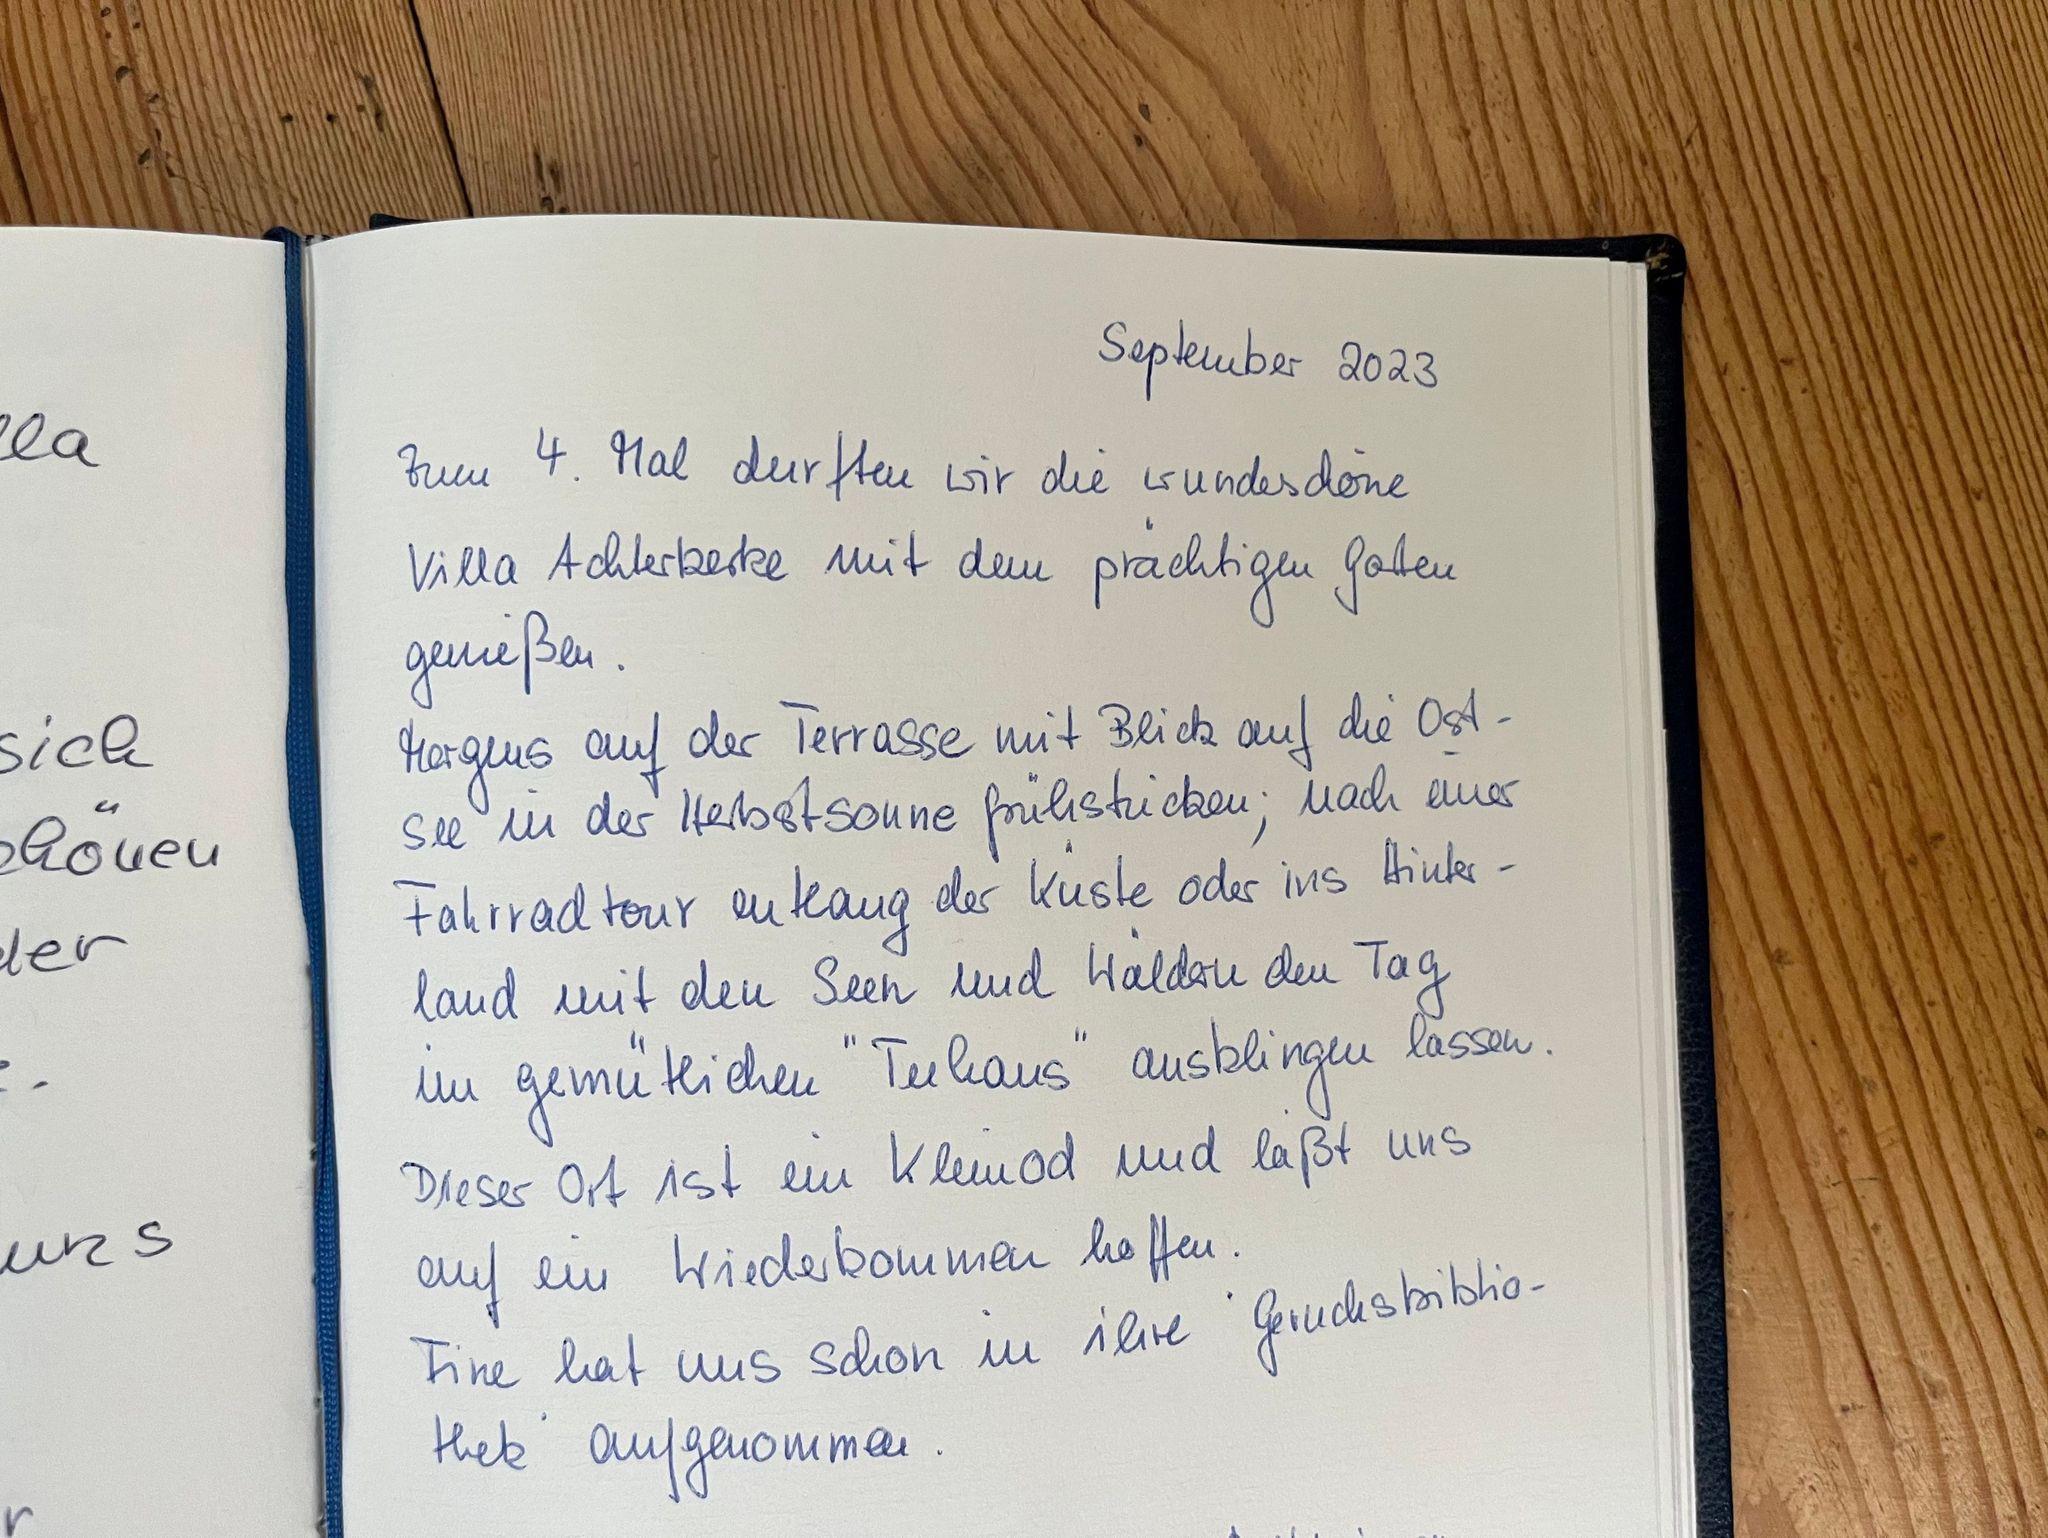 lla
sich
chönen
der
uns
r
September 2023
Zum 4. Mal durften wir die wunderschöne
Villa Achterkerke mit dem prächtigen Garten
genießen.
Morgens auf der Terrasse mit Blick auf die Ost-
see in der Herbstsonne frühstücken; nach einer
Fahrradtour entlang der Küste oder ins Hinter-
land mit den Seen und Wäldern den Tag
im gemütlichen "Teehaus" ausklingen lassen.
Dieser Ort ist ein Kleinod und läßt uns
auf ein Wiederkommen hoffen.
Fine hat uns schon in ihre 'Geruchsbiblio-
thek' aufgenommen.